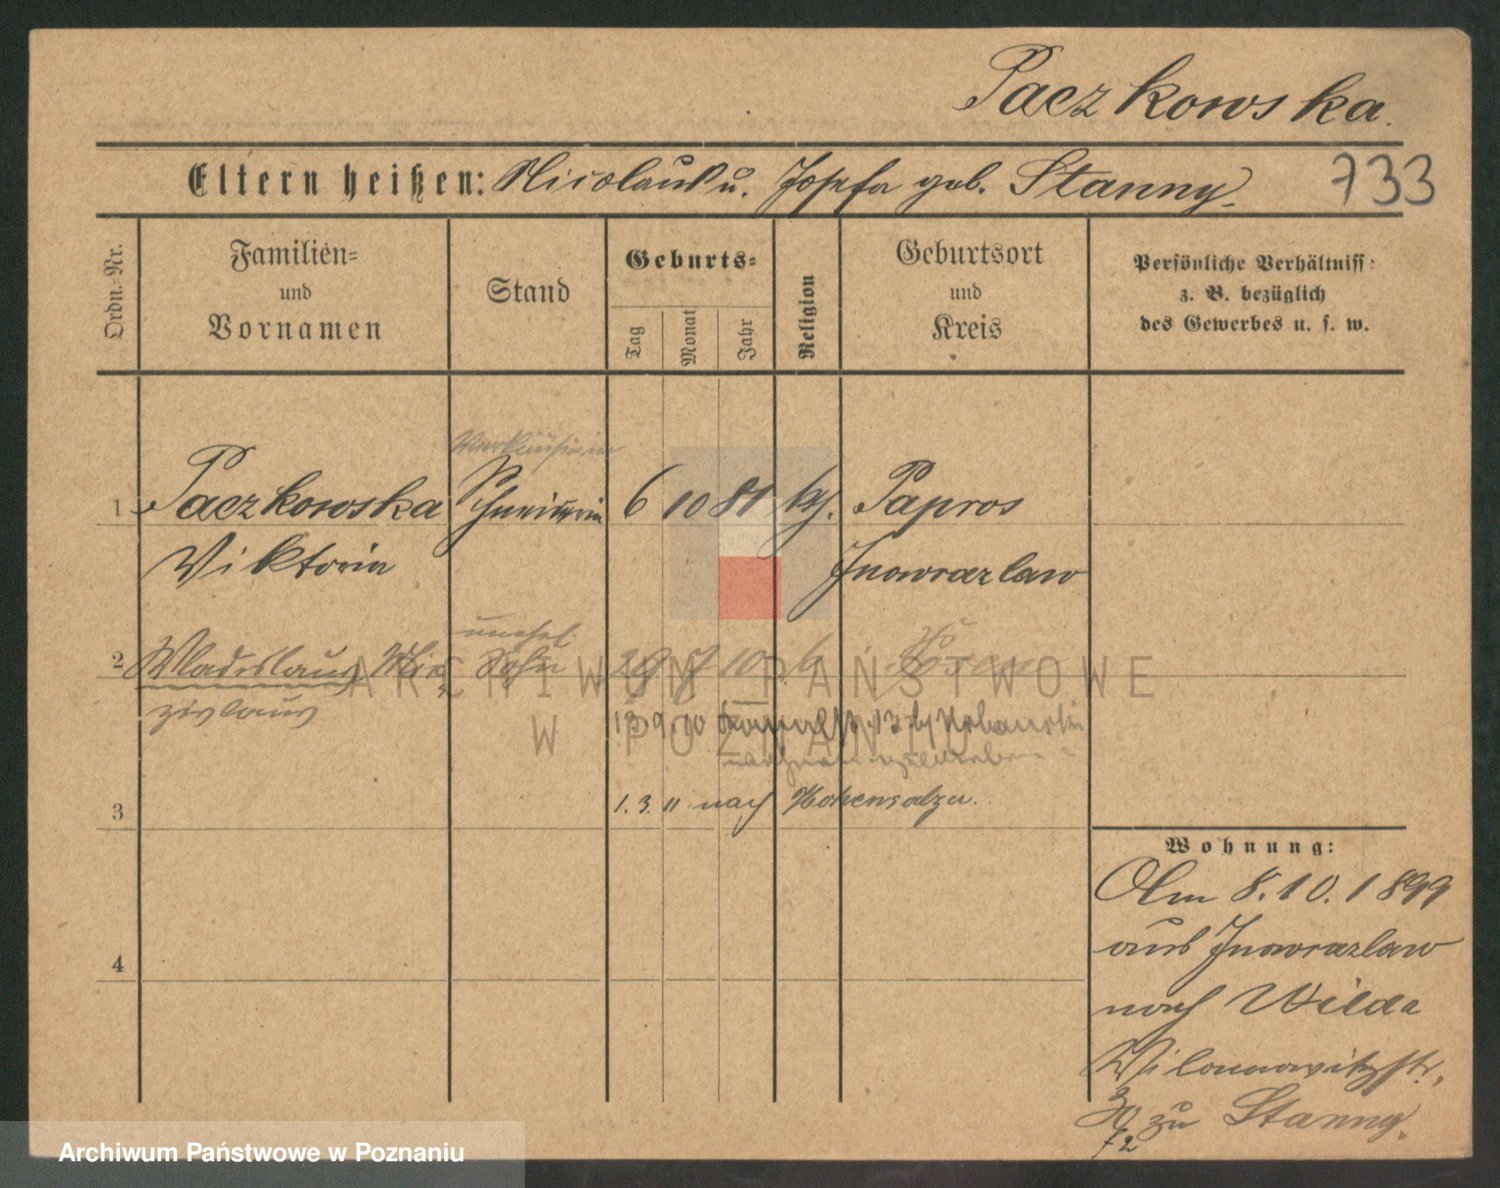 Paczkowska.
Eltern heißen: Nicolaus u. Josefa geb. Stanny. 733
Ordn.-Nr.
Familien-
und
Vornamen
Stand
Geburts-
Tag
Monat
Jahr
Religion
Geburtsort
und
Kreis
Persönliche Verhältniss:
z. B. bezüglich
des Gewerbes u. s. w.
Verkäuferin
1 Paczkowska Schneiderin 6 10 81 kth. Papros
Viktoria Inowrazlaw
unehel.
2 Wladislaus Mie- Sohn 29 7 10 k Posen
zislaus
13.9.10
3 1. 3. 11 nach Hohensalza.
4
Wohnung:
Am 8.10.1899
aus Inowrazlaw
nach Wilda
30 zu Stanny.
72
ARCHIWUM PAŃSTWOWE
W POZNANIU
Archiwum Państwowe w Poznaniu